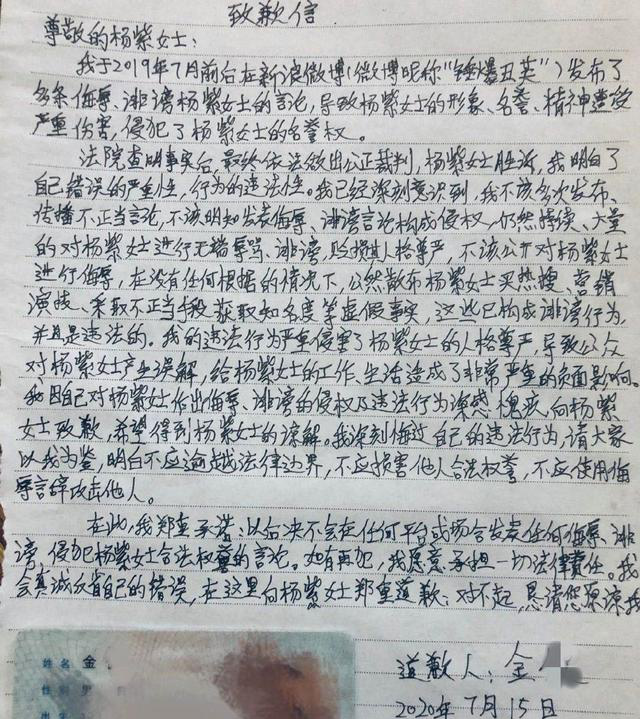 致歉信
尊敬的杨紫女士：
我于2019年7月前后在新浪微博(微博昵称“锤爆丑英”)发布了
多条侮辱、诽谤杨紫女士的言论，导致杨紫女士的形象、名誉、精神遭受
严重伤害，侵犯了杨紫女士的名誉权。
法院查明事实后，最终依法做出公正裁判，杨紫女士胜诉，我明白了
自己错误的严重性，行为的违法性。我已经深刻意识到，我不该多次发布、
传播不正当言论，不该明知发表侮辱、诽谤言论构成侵权，仍然持续、大量
的对杨紫女士进行无端辱骂、诽谤，贬损其人格尊严，不该公开对杨紫女士
进行侮辱，在没有任何根据的情况下，公然散布杨紫女士买热搜、营销
演技、采取不正当手段获取知名度等虚假事实，这些已构成诽谤行为，
并且是违法的。我的违法行为严重侵害了杨紫女士的人格尊严，导致公众
对杨紫女士产生误解，给杨紫女士的工作、生活造成了非常严重的负面影响。
我因自己对杨紫女士作出侮辱、诽谤的侵权及违法行为深感愧疚，向杨紫
女士致歉，希望得到杨紫女士的谅解。我深刻悔过自己的违法行为，请大家
以我为鉴，明白不应逾越法律边界，不应损害他人合法权益，不应使用侮
辱言辞攻击他人。
在此，我郑重承诺：以后决不会在任何平台或场合发表任何侮辱、诽
谤、侵犯杨紫女士合法权益的言论。如有再犯，我愿意承担一切法律责任。我
会真诚反省自己的错误，在这里向杨紫女士郑重道歉：对不起，恳请您原谅我
道歉人：金
2020年7月15日
姓名 金
性别 男
出生